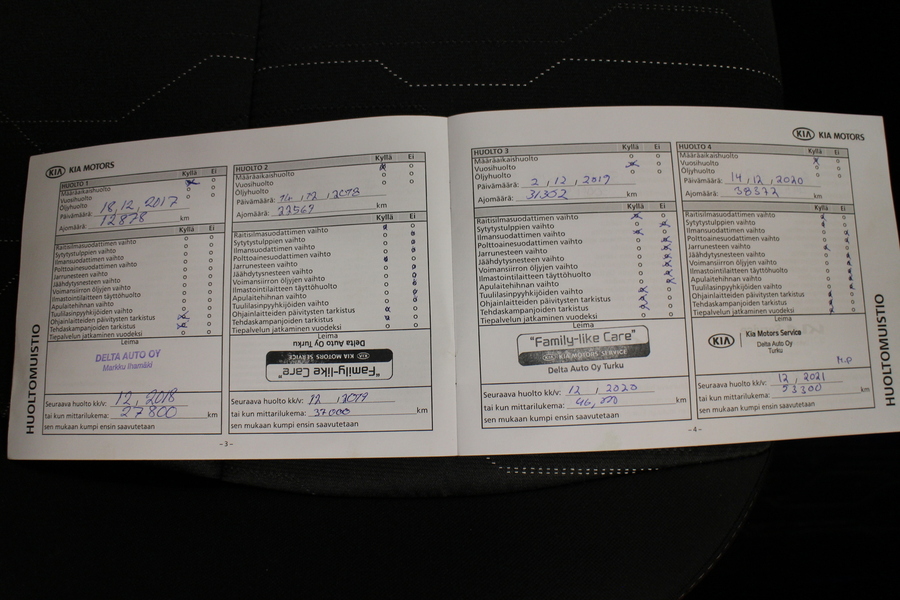 KIA KIA MOTORS
HUOLTO 1 Kyllä Ei
Määräaikaishuolto
Vuosihuolto
Öljyhuolto
Päivämäärä: 18,12,2017
Ajomäärä: 12878 km
Kyllä Ei
Raitisilmasuodattimen vaihto
Sytytystulppien vaihto
Ilmansuodattimen vaihto
Polttoainesuodattimen vaihto
Jarrunesteen vaihto
Jäähdytysnesteen vaihto
Voimansiirron öljyjen vaihto
Ilmastointilaitteen täyttöhuolto
Apulaitehihnan vaihto
Tuulilasinpyyhkijöiden vaihto
Ohjainlaitteiden päivitysten tarkistus
Tehdaskampanjoiden tarkistus
Tiepalvelun jatkaminen vuodeksi
Leima
DELTA AUTO OY
Markku Ihamäki
Seuraava huolto kk/v: 12, 2018
tai kun mittarilukema: 27800 km
sen mukaan kumpi ensin saavutetaan
HUOLTOMUISTIO
HUOLTO 2 Kyllä Ei
Määräaikaishuolto
Vuosihuolto
Öljyhuolto
Päivämäärä: 2018
Ajomäärä: 22569 km
Kyllä Ei
Raitisilmasuodattimen vaihto
Sytytystulppien vaihto
Ilmansuodattimen vaihto
Polttoainesuodattimen vaihto
Jarrunesteen vaihto
Jäähdytysnesteen vaihto
Voimansiirron öljyjen vaihto
Ilmastointilaitteen täyttöhuolto
Apulaitehihnan vaihto
Tuulilasinpyyhkijöiden vaihto
Ohjainlaitteiden päivitysten tarkistus
Tehdaskampanjoiden tarkistus
Tiepalvelun jatkaminen vuodeksi
Leima
Delta Auto Oy Turku
KIA KIA MOTORS SERVICE
"Family-like Care"
Seuraava huolto kk/v: 12, 2019
tai kun mittarilukema: 37000 km
sen mukaan kumpi ensin saavutetaan
- 3 -
HUOLTO 3 Kyllä Ei
Määräaikaishuolto
Vuosihuolto
Öljyhuolto
Päivämäärä: 2,12,2019
Ajomäärä: 31302 km
Kyllä Ei
Raitisilmasuodattimen vaihto
Sytytystulppien vaihto
Ilmansuodattimen vaihto
Polttoainesuodattimen vaihto
Jarrunesteen vaihto
Jäähdytysnesteen vaihto
Voimansiirron öljyjen vaihto
Ilmastointilaitteen täyttöhuolto
Apulaitehihnan vaihto
Tuulilasinpyyhkijöiden vaihto
Ohjainlaitteiden päivitysten tarkistus
Tehdaskampanjoiden tarkistus
Tiepalvelun jatkaminen vuodeksi
Leima
"Family-like Care"
KIA KIA MOTORS SERVICE
Delta Auto Oy Turku
Seuraava huolto kk/v: 12, 2020
tai kun mittarilukema: km
sen mukaan kumpi ensin saavutetaan
KIA KIA MOTORS
HUOLTO 4 Kyllä Ei
Määräaikaishuolto
Vuosihuolto
Öljyhuolto
Päivämäärä: 14,12,2020
Ajomäärä: 38372 km
Kyllä Ei
Raitisilmasuodattimen vaihto
Sytytystulppien vaihto
Ilmansuodattimen vaihto
Polttoainesuodattimen vaihto
Jarrunesteen vaihto
Jäähdytysnesteen vaihto
Voimansiirron öljyjen vaihto
Ilmastointilaitteen täyttöhuolto
Apulaitehihnan vaihto
Tuulilasinpyyhkijöiden vaihto
Ohjainlaitteiden päivitysten tarkistus
Tehdaskampanjoiden tarkistus
Tiepalvelun jatkaminen vuodeksi
Leima
KIA Kia Motors Service
Delta Auto Oy
Turku
M.P
Seuraava huolto kk/v: 12, 2021
tai kun mittarilukema: 53300 km
sen mukaan kumpi ensin saavutetaan
- 4 -
HUOLTOMUISTIO